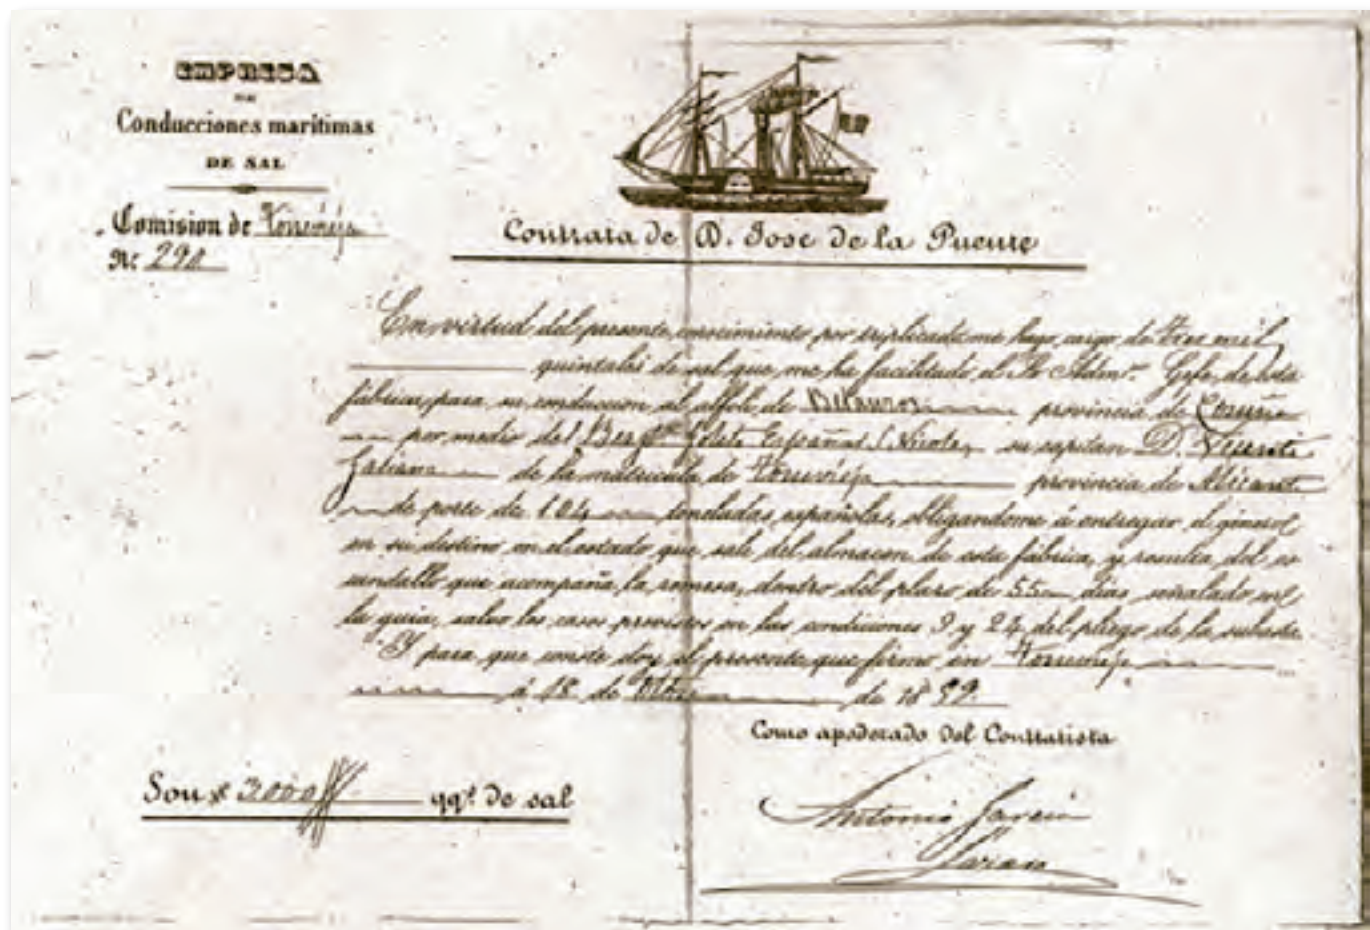 EMPRESA
DE
Conducciones marítimas
DE SAL
Comision de Torrevieja
Nº 290
Contrata de D. Jose de la Puente
En virtud del presente conocimiento por triplicado me hago cargo de tres mil
quintales de sal que me ha facilitado el Sr Admor. Gefe de esta
fábrica para su conduccion al alfolí de Betanzos provincia de Coruña
por medio del Español S. Nicolas, su capitan D. Vicente
Galiana de la matricula de Torrevieja provincia de Alicante
de porte de 104 toneladas españolas, obligandome á entregar el género
en su destino en el estado que sale del almacen de esta fábrica, y resulta del es
candallo que acompaña la remesa, dentro del plazo de 55 dias señalado en
la guia, salvo los casos previstos en las condiciones 9 y 24 del pliego de la subasta.
Y para que conste doy el presente que firmo en Torrevieja
á 18 de de 18 59.
Como apoderado del Contratista
Son 3000 qqs. de sal
Antonio Garcin